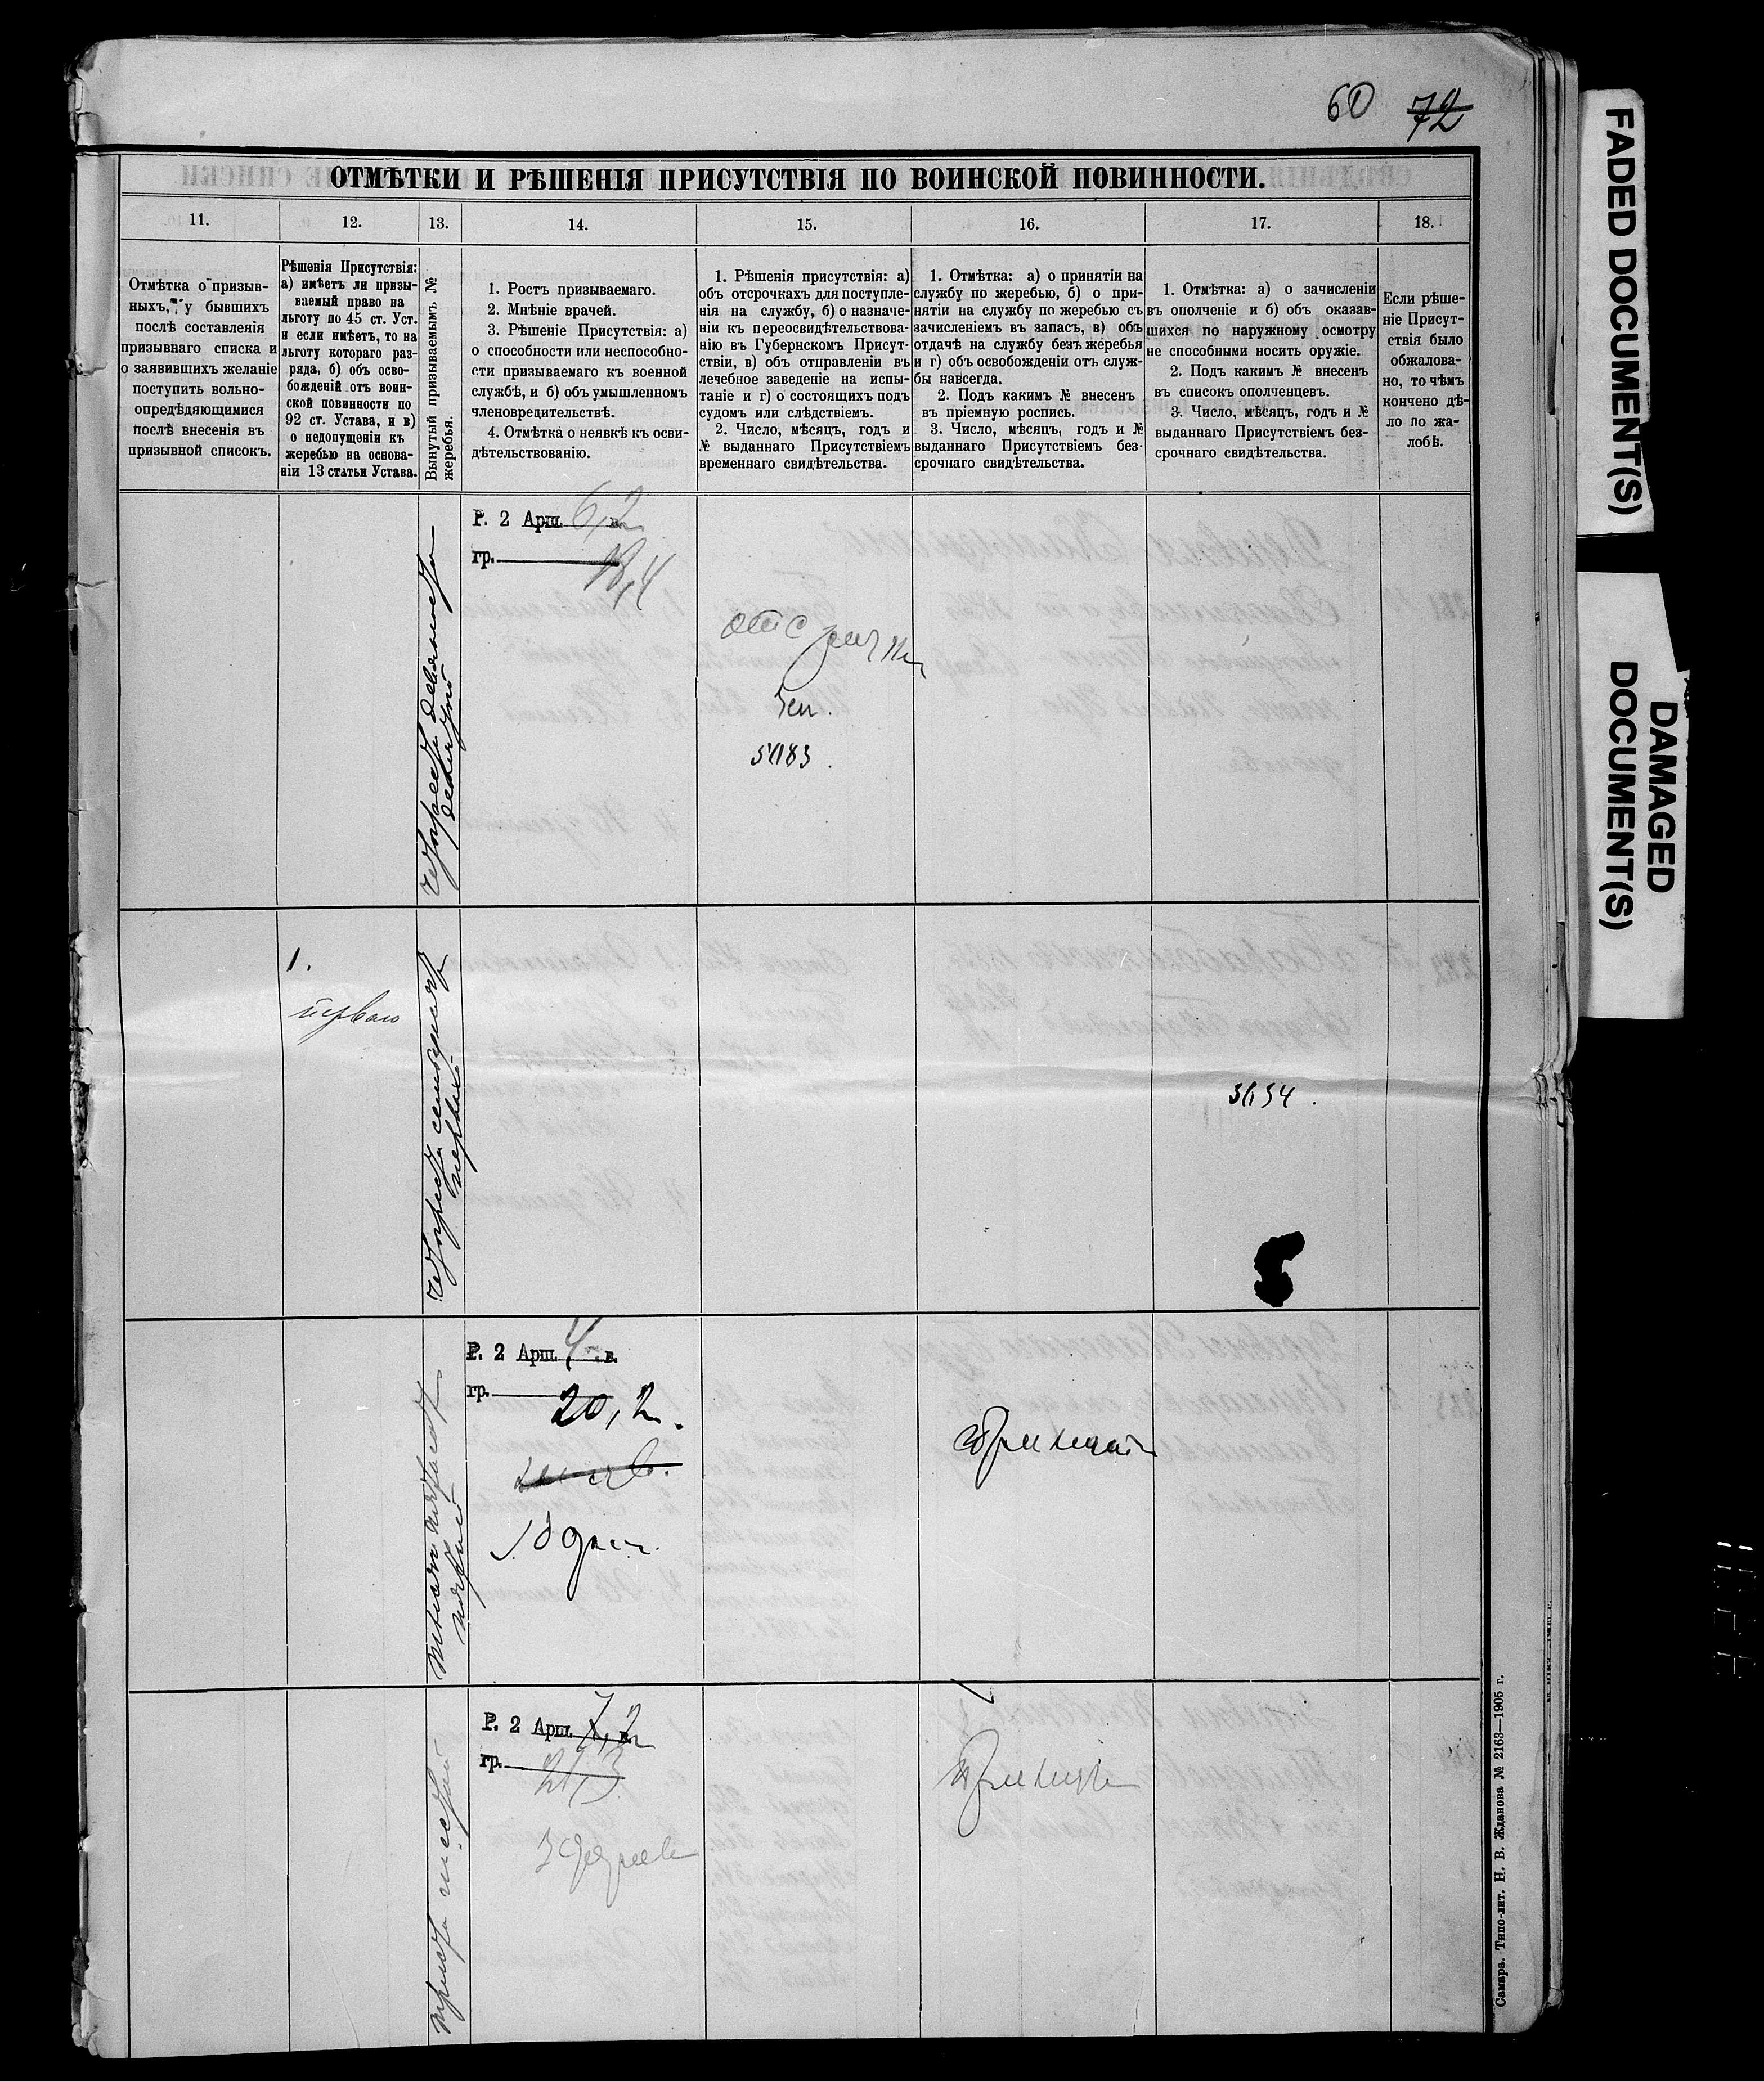 60 72
ОТМѢТКИ И РѢШЕНІЯ ПРИСУТСТВІЯ ПО ВОИНСКОЙ ПОВИННОСТИ.
11.
12.
13.
14.
15.
16.
17.
18.
Отмѣтка о призыв-
ныхъ, у бывшихъ
послѣ составленія
призывнаго списка и
о заявившихъ желаніе
поступить вольно-
опредѣляющимися
послѣ внесенія въ
призывной списокъ.
Рѣшенія Присутствія:
а) имѣетъ ли призы-
ваемый право на
льготу по 45 ст. Уст.
и если имѣетъ, то на
льготу котораго раз-
ряда, б) объ осво-
божденій отъ воин-
ской повинности по
92 ст. Устава, и в)
о недопущеніи къ
жеребью на основа-
ніи 13 статьи Устава.
Вынутый призываемымъ №
жеребья.
1. Ростъ призываемаго.
2. Мнѣніе врачей.
3. Рѣшеніе Присутствія: а)
о способности или неспособно-
сти призываемаго къ военной
службѣ, и б) объ умышленномъ
членовредительствѣ.
4. Отмѣтка о неявкѣ къ осви-
дѣтельствованію.
1. Рѣшенія присутствія: а)
объ отсрочкахъ для поступле-
нія на службу, б) о назначе-
ніи къ переосвидѣтельствова-
нію въ Губернскомъ Присут-
ствіи, в) объ отправленіи въ
лечебное заведеніе на испы-
таніе и г) о состоящихъ подъ
судомъ или слѣдствіемъ.
2. Число, мѣсяцъ, годъ и
№ выданнаго Присутствіемъ
временнаго свидѣтельства.
1. Отмѣтка: а) о принятіи на
службу по жеребью, б) о при-
нятіи на службу по жеребью съ
зачисленіемъ въ запасъ, в) объ
отдачѣ на службу безъ жеребья
и г) объ освобожденіи отъ служ-
бы навсегда.
2. Подъ какимъ № внесенъ
въ пріемную роспись.
3. Число, мѣсяцъ, годъ и №
выданнаго Присутствіемъ без-
срочнаго свидѣтельства.
1. Отмѣтка: а) о зачисленіи
въ ополченіе и б) объ оказав-
шихся по наружному осмотру
не способными носить оружіе.
2. Подъ какимъ № внесенъ
въ списокъ ополченцевъ.
3. Число, мѣсяцъ, годъ и №
выданнаго Присутствіемъ без-
срочнаго свидѣтельства.
Если рѣше-
ніе Присут-
ствія было
обжалова-
но, то чѣмъ
кончено дѣ-
ло по жа-
лобѣ.
четыреста девяносто
Р. 2 Арш. 6,2 в.
гр.
1.
перваго
четыреста семьдесятъ
первый
Р. 2 Арш. 4 в.
гр. 20,2.
Годен
Принятъ
пятый
Р. 2 Арш. 7,2 в.
гр. 21,3
Принятъ
триста шестой
Самара. Типо-лит. Н. В. Жданова № 2163—1905 г.
FADED DOCUMENT(S)
DAMAGED
DOCUMENT(S)